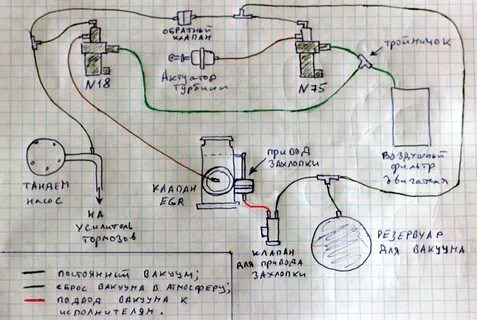 ОБРАТНЫЙ
КЛАПАН
N18
Актуатор
турбины
N75
ТРОЙНИЧОК
ТАНДЕМ
НАСОС
НА
УСИЛИТЕЛЬ
ТОРМОЗОВ
КЛАПАН
EGR
ПРИВОД
ЗАХЛОПКИ
ВОЗДУШНЫЙ
ФИЛЬТР
двигателя
КЛАПАН
ДЛЯ ПРИВОДА
ЗАХЛОПКИ
РЕЗЕРВУАР
ДЛЯ ВАКУУМА
ПОСТОЯННЫЙ ВАКУУМ;
СБРОС ВАКУУМА В АТМОСФЕРУ;
ПОДВОД ВАКУУМА К
ИСПОЛНИТЕЛЯМ.